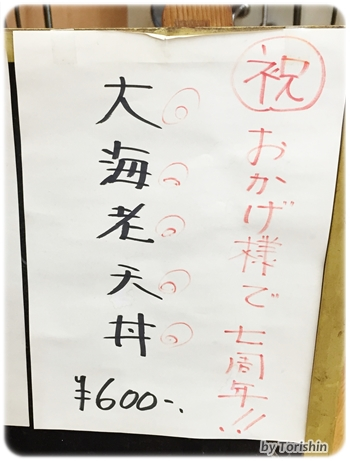 祝 おかげ様で七周年!!
大海老天丼
¥600-.
by Torishin